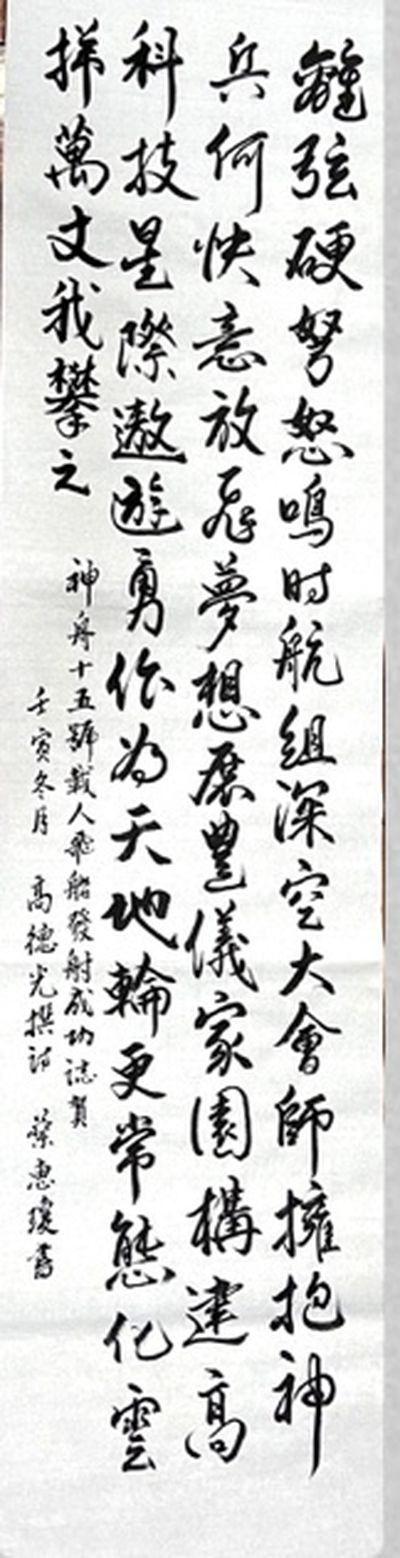 離弦硬弩怒鳴时航組深空大會師擁抱神
兵何快意放飛夢想展豊儀家園構建高
科技星際遨遊勇作為天地輪更常態化雲
梯萬丈我攀之
神舟十五號載人飛船發射成功誌賀
壬寅冬月 高德光撰詩 蔡惠瓊書